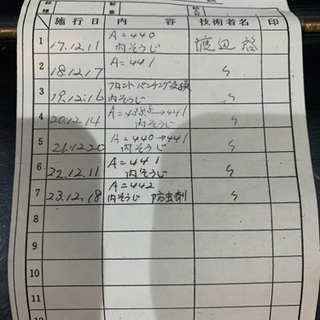 施行日 内容 技術者名 印
1 17.12.11 A=440 渡辺
内そうじ
2 18.12.17 A=441 〃
3 19.12.16 フロントパンチング交換 〃
内そうじ
4 20.12.14 A=438.5→441 〃
内そうじ
5 21.12.20 A=440→441 〃
内そうじ
6 22.12.11 A=441 〃
内そうじ
7 23.12.18 A=442 〃
内そうじ 防虫剤
8
9
10
11
12